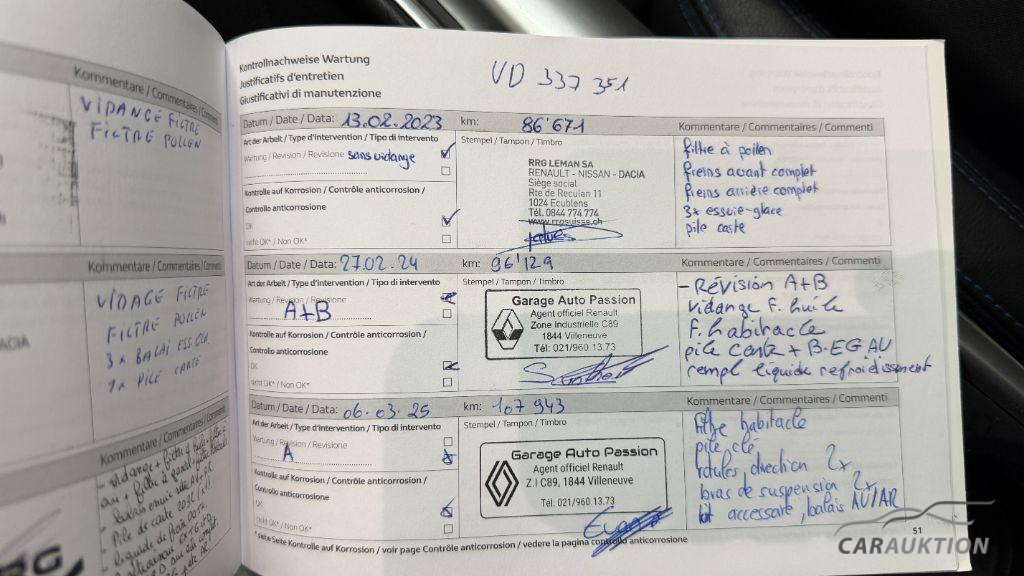 Kommentare / Commentaires / Comment
VIDANGE FILTRE
FILTRE POLLEN
Kommentare / Commentaires / Comment
VIDAGE FILTRE
FILTRE POLLEN
3 x BALAI ESS
1x PILE CARTE
Kommentare / Commentaires / Comm
Kontrollnachweise Wartung
Justificatifs d'entretien
Giustificativi di manutenzione
VD 337 351
Datum / Date / Data: 13.02.2023 km: 86'671 Kommentare / Commentaires / Commenti
Art der Arbeit / Type d'intervento / Tipo di intervento
Wartung / Revision / Revisione sans vidange
Kontrolle auf Korrosion / Contrôle anticorrosion /
Controllo anticorrosione
OK
nicht OK* / Non OK*
Stempel / Tampon / Timbro
RRG LEMAN SA
RENAULT - NISSAN - DACIA
Siège social
Rte de Reculan 11
1024 Ecublens
Tél. 0844 774 774
www.rrgsuisse.ch
filtre à pollen
freins avant complet
freins arrière complet
3x essuie-glace
pile carte
Datum / Date / Data: 27.02.24 km: 96'129 Kommentare / Commentaires / Commenti
Art der Arbeit / Type d'intervento / Tipo di intervento
Wartung / Revision / Revisione
A+B
Kontrolle auf Korrosion / Contrôle anticorrosion /
Controllo anticorrosione
OK*
nicht OK* / Non OK*
Stempel / Tampon / Timbro
Garage Auto Passion
Agent officiel Renault
Zone Industrielle C89
1844 Villeneuve
Tél: 021/960.13.73
- Révision A+B
vidange F. huile
F. habitacle
pile carte + B.EG AV
rempl liquide refroidissement
Datum / Date / Data: 06.03.25 km: 107 943 Kommentare / Commentaires / Commenti
Art der Arbeit / Type d'intervento / Tipo di intervento
Wartung / Revision / Revisione
A
Kontrolle auf Korrosion / Contrôle anticorrosion /
Controllo anticorrosione
OK
nicht OK* / Non OK*
Stempel / Tampon / Timbro
Garage Auto Passion
Agent officiel Renault
Z.I C89, 1844 Villeneuve
Tél: 021/960.13.73
filtre habitacle
pile clé
rotules direction 2x
bras de suspension 2x
kit accessoire, balais AV/AR
* siehe Seite Kontrolle auf Korrosion / voir page Contrôle anticorrosion / vedere la pagina controllo anticorrosione
51
CARAUKTION